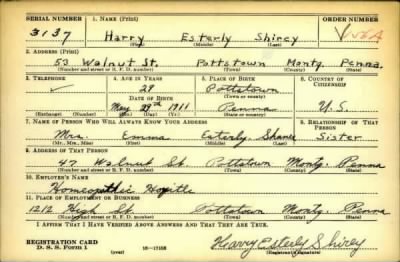 SERIAL NUMBER 1. NAME (Print) ORDER NUMBER
3137 Harry Esterly Shirey
(First) (Middle) (Last)
2. ADDRESS (Print)
53 Walnut St. Pottstown Montg. Penna.
(Number and street or R. F. D. number) (Town) (County) (State)
3. TELEPHONE 4. AGE IN YEARS 5. PLACE OF BIRTH 6. COUNTRY OF CITIZENSHIP
✓ 29 Pottstown
DATE OF BIRTH (Town or county)
May 29th 1911 Penna U.S.
(Exchange) (Number) (Mo.) (Day) (Yr.) (State or country)
7. NAME OF PERSON WHO WILL ALWAYS KNOW YOUR ADDRESS 8. RELATIONSHIP OF THAT PERSON
Mrs. Emma Esterly Sister
(Mr., Mrs., Miss) (First) (Middle) (Last)
9. ADDRESS OF THAT PERSON
47 Walnut St. Pottstown Montg. Penna
(Number and street or R. F. D. number) (Town) (County) (State)
10. EMPLOYER'S NAME
11. PLACE OF EMPLOYMENT OR BUSINESS
1212 High St. Pottstown Montg. Penna
(Number and street or R. F. D. number) (Town) (County) (State)
I AFFIRM THAT I HAVE VERIFIED ABOVE ANSWERS AND THAT THEY ARE TRUE.
REGISTRATION CARD
D. S. S. Form 1 (over) 16—17105 Harry Esterly Shirey
(Registrant's signature)